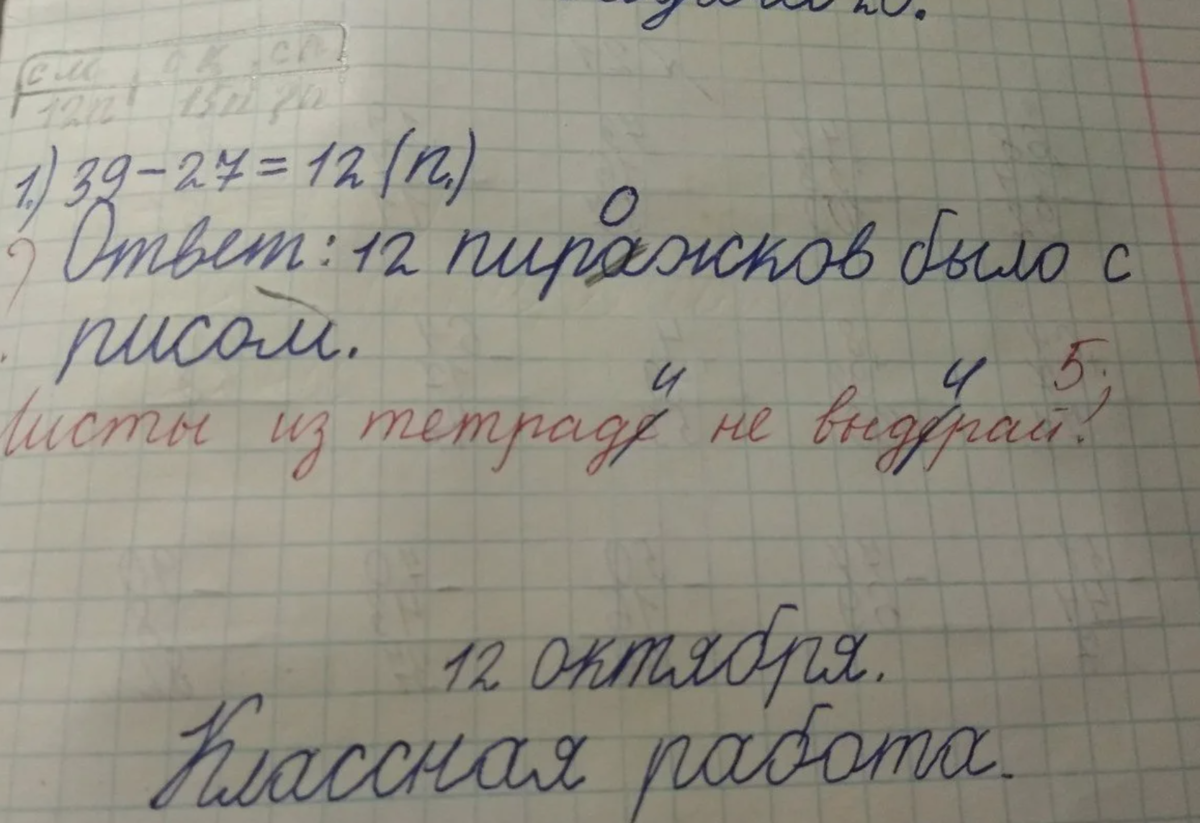 1.) 39-27=12 (п.)
Ответ: 12 пирожков было с
рисом.
5.
Листы из тетради не выдирай!
12 октября.
Классная работа.